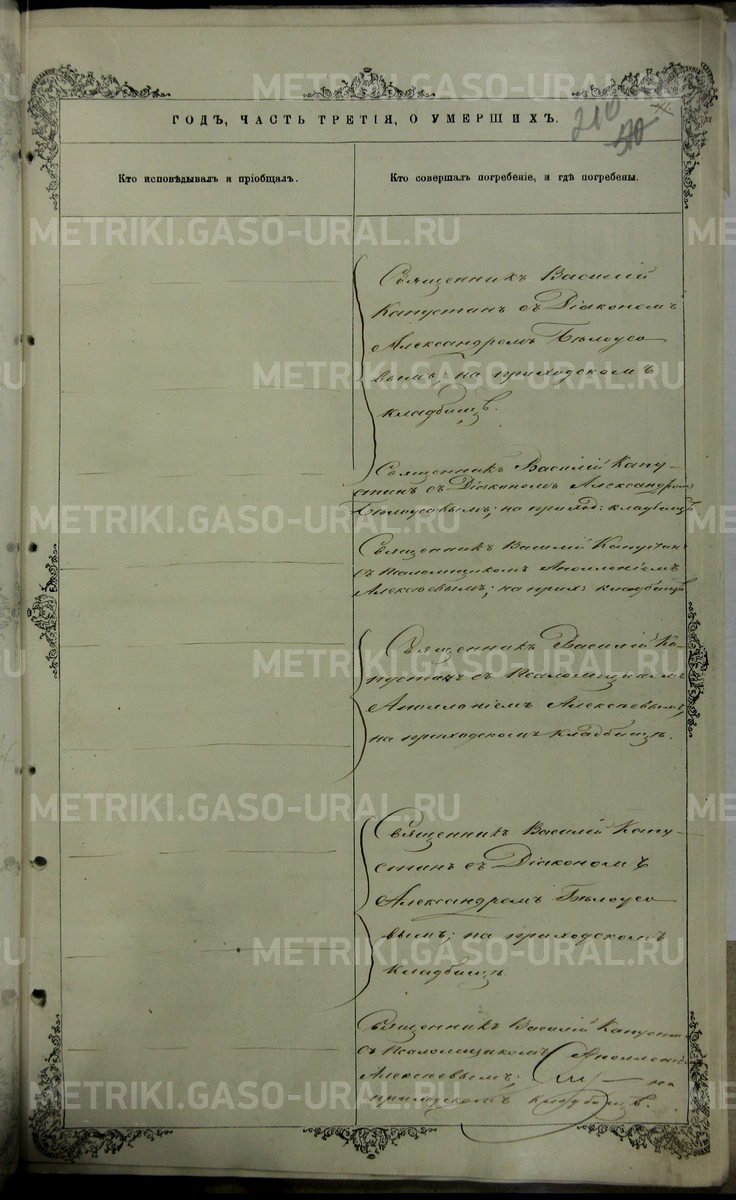 ГОДЪ, ЧАСТЬ ТРЕТІЯ, О УМЕРШИХЪ.
210
Кто исповѣдывалъ и пріобщалъ.
Кто совершалъ погребеніе, и гдѣ погребены.
Священникъ Василій
Капустинъ съ Діакономъ
Александромъ Бѣлоусо
вымъ, на приходскомъ
кладбищѣ.
Священникъ Василій Капу-
стинъ съ Діакономъ Александромъ
Бѣлоусовымъ; на приход: кладбищѣ
Священникъ Василій Капустинъ
съ псаломщикомъ Аполлоніемъ
Алексѣевымъ; на прих: кладбищѣ
Священникъ Василій Ка-
пустинъ съ Псаломщикомъ
Аполлоніемъ Алексѣевымъ,
на приходскомъ кладбищѣ.
Священникъ Василій Капу-
стинъ съ Діакономъ
Александромъ Бѣлоусо
вымъ; на приходскомъ
кладбищѣ.
Священникъ Василій Капустинъ
съ Псаломщикомъ Аполлоніе
Алексѣевымъ; на
приходскомъ кладбищѣ.
METRIKI.GASO-URAL.RU